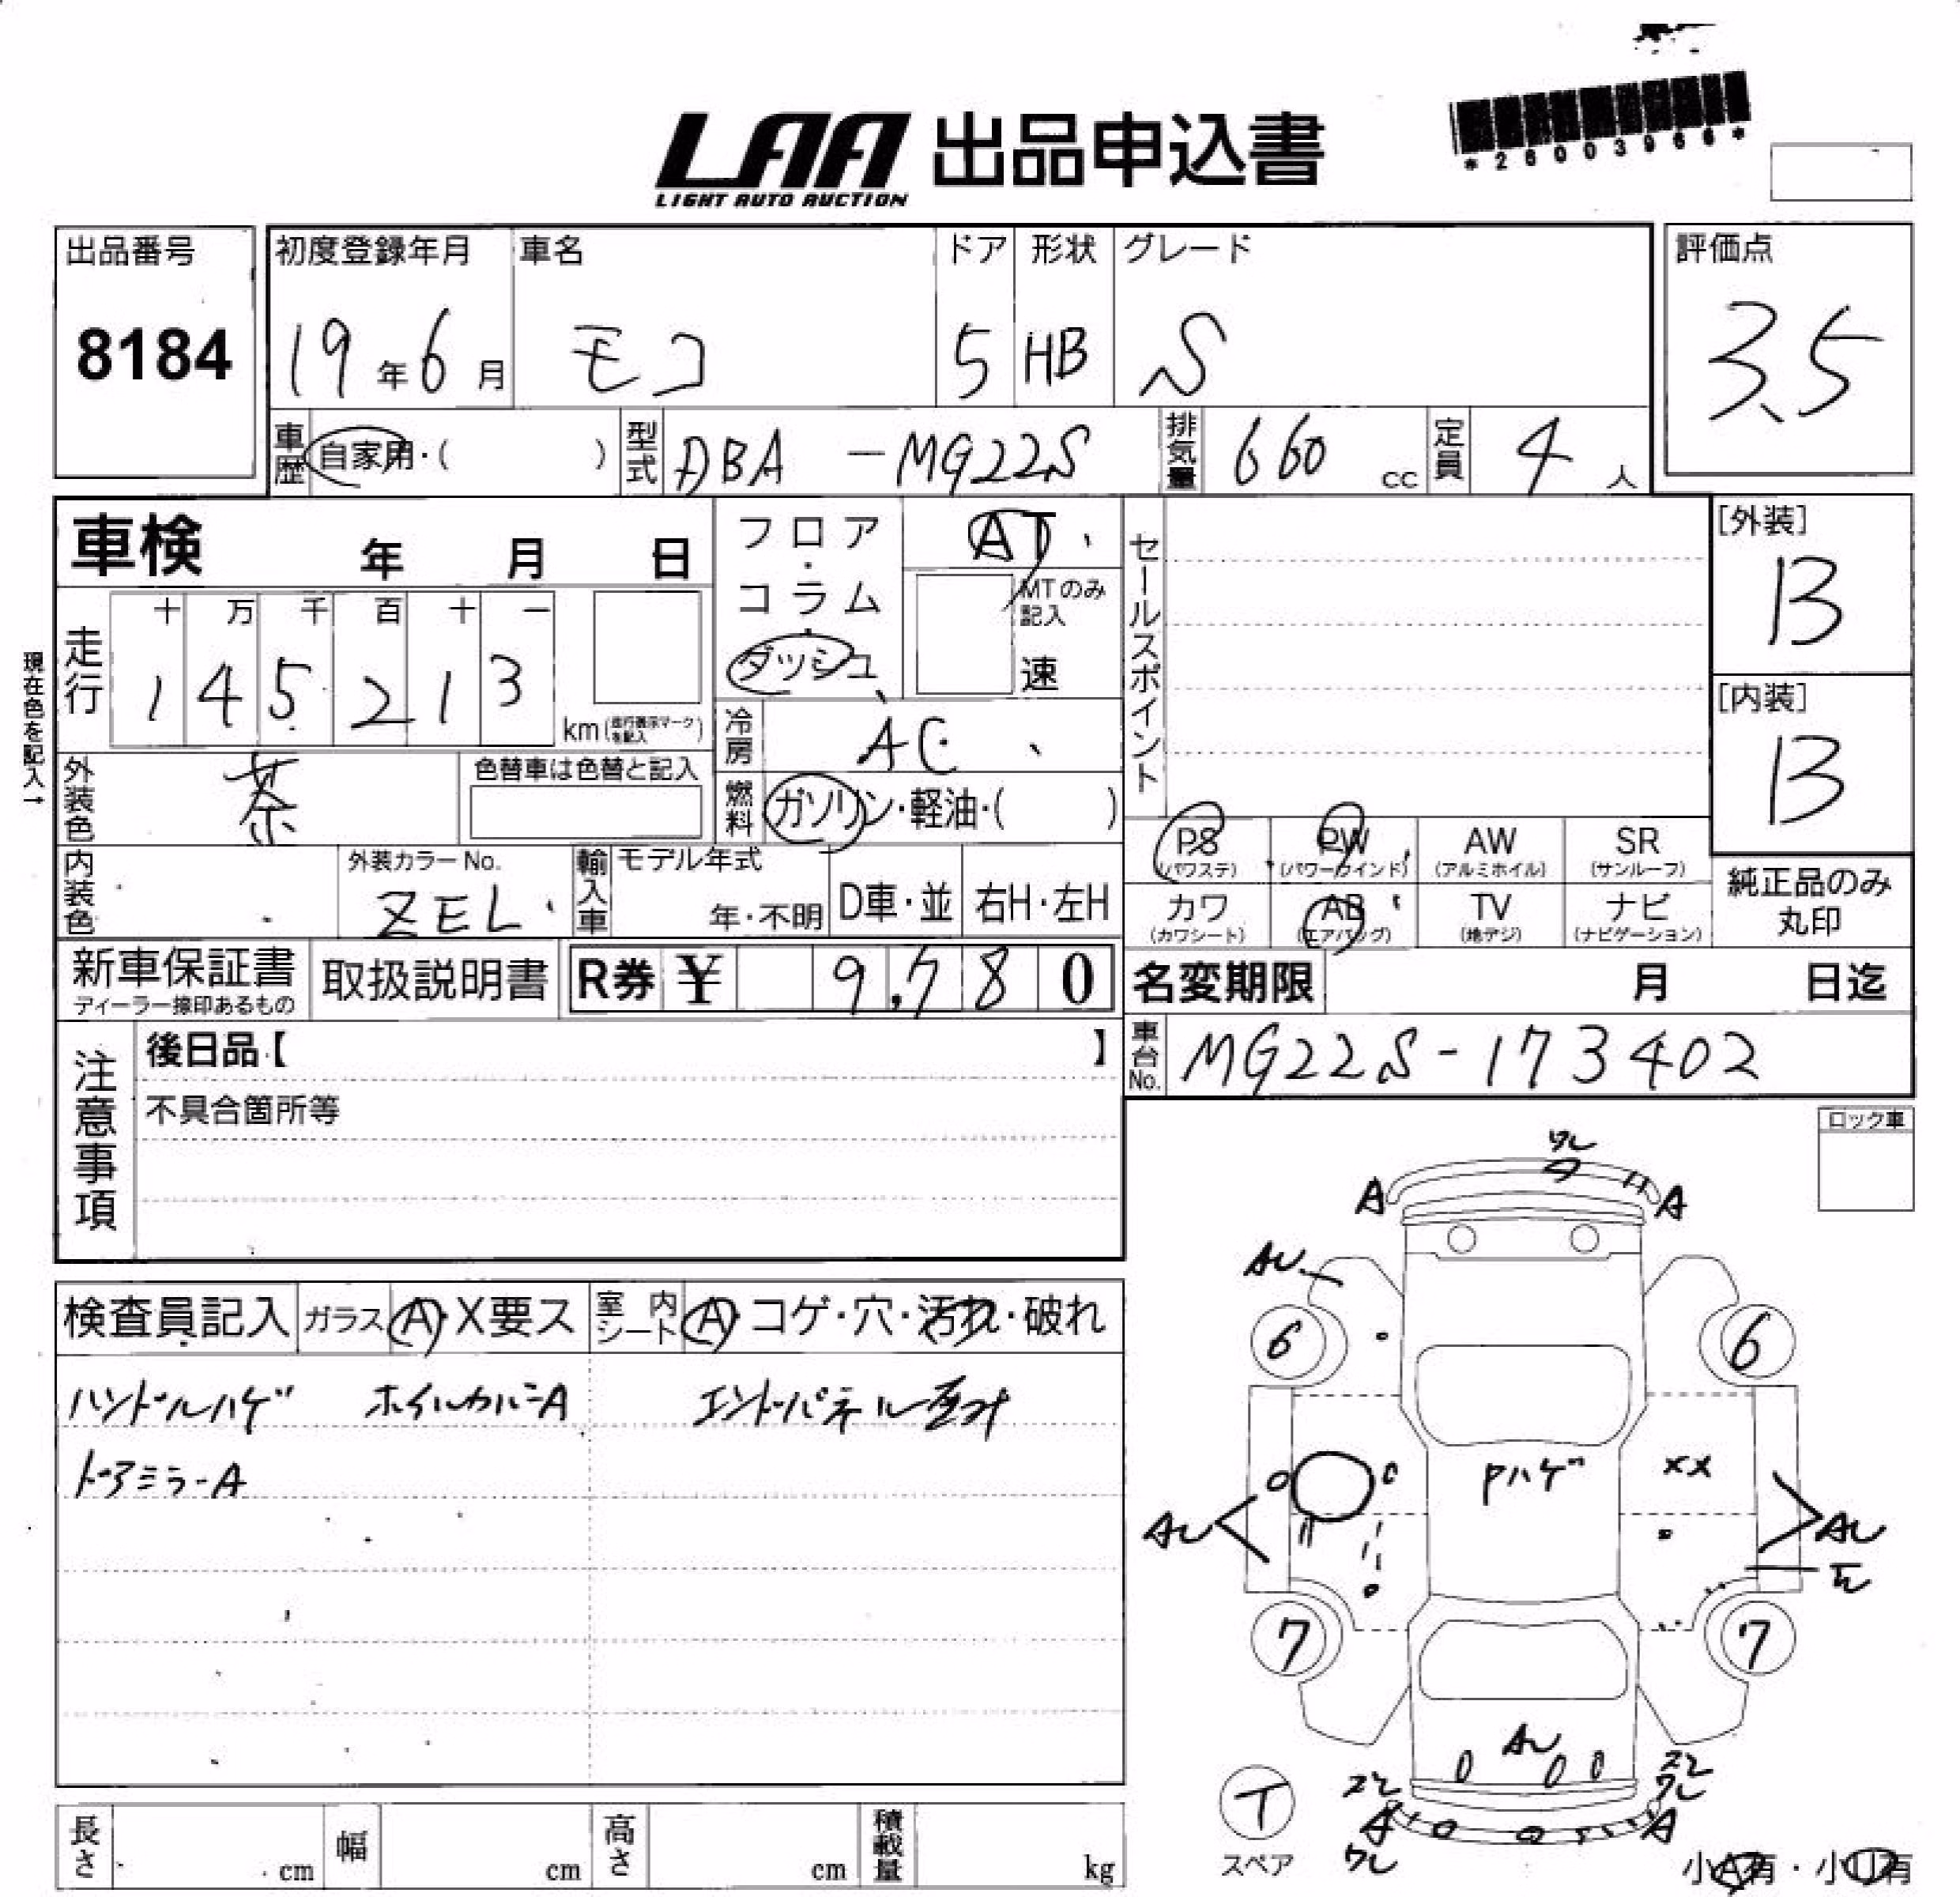 LAA 出品申込書
LIGHT AUTO AUCTION
*2600396
出品番号
8184
初度登録年月
19年6月
車名
モコ
ドア
5
形状
HB
グレード
S
評価点
3.5
車歴 自家用・( )
型式 DBA-MG22S
排気量 660 cc
定員 4 人
車検 年 月 日
フロア・コラム・ダッシュ
AT
MTのみ記入
速
セールスポイント
[外装]
B
[内装]
B
現在色を記入→
走行
十 万 千 百 十 一
1 4 5 2 1 3
km(走行表示マークを記入)
冷房 AC
外装色 茶
色替車は色替と記入
燃料 ガソリン・軽油・( )
PS (パワステ)
PW (パワーウインド)
AW (アルミホイル)
SR (サンルーフ)
内装色
外装カラーNo.
ZEL
輸入車
モデル年式
年・不明
D車・並
右H・左H
カワ (カワシート)
AB (エアバッグ)
TV (地デジ)
ナビ (ナビゲーション)
純正品のみ丸印
新車保証書
ディーラー捺印あるもの
取扱説明書
R券 ¥ 9,780
名変期限 月 日迄
注意事項
後日品【 】
不具合箇所等
車台No. MG22S-173402
ロック車
検査員記入
ガラス A・X要ス
室内シート A・コゲ・穴・汚れ・破れ
ハンドルハゲ ホイルカバーA エンドパネル歪み
ドアミラーA
ワレ
A
A
AU
6
6
Pハゲ
XX
AU
AU
7
7
AU
ズレ
ズレ
ワレ
A
A
ワレ
T
スペア
小A有・小U有
長さ cm
幅 cm
高さ cm
積載量 kg